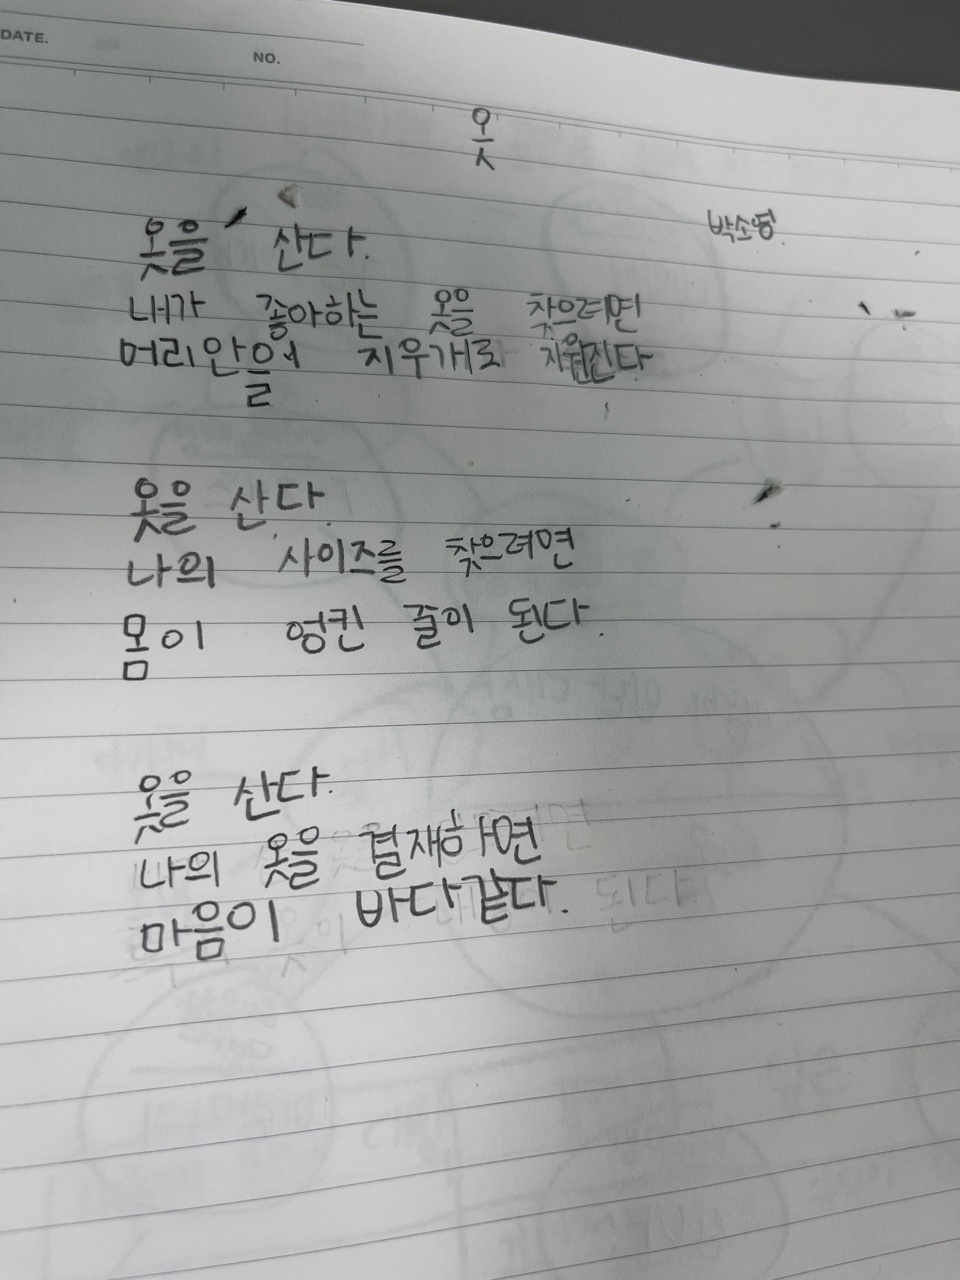 DATE.
NO.
옷
박소영.
옷을 산다.
내가 좋아하는 옷을 찾으려면
머리안을에 지우개로 지워진다
옷을 산다.
나의 사이즈를 찾으려면
몸이 엉킨 줄이 된다.
옷을 산다.
나의 옷을 결재하면
마음이 바다같다.